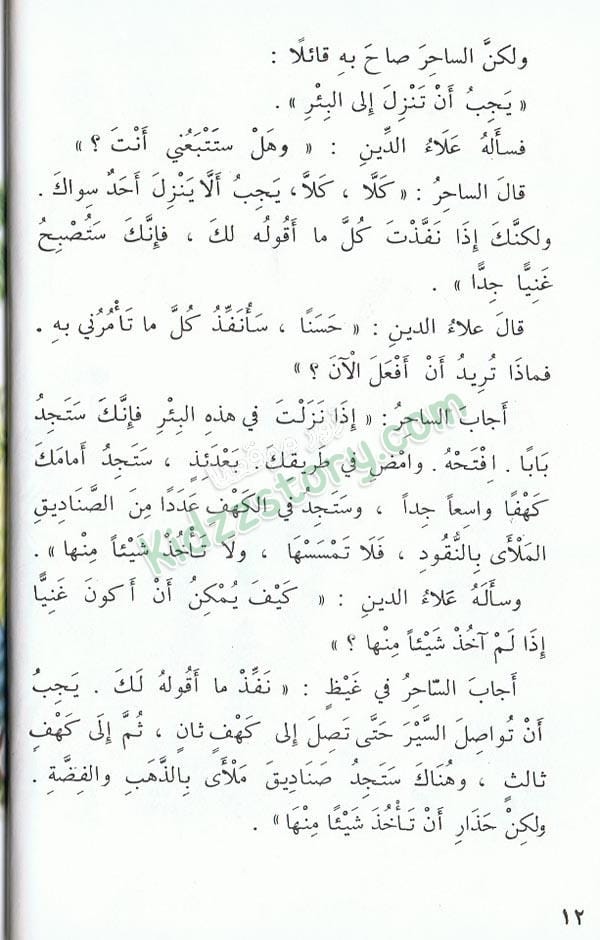 ولكنَّ الساحِرَ صاحَ بهِ قائلًا :
« يَجِبُ أَنْ تَنْزِلَ إلى البِئْرِ » .
فسأَلَهُ عَلَاءُ الدِّينِ : « وهَلْ ستَتْبَعُني أَنْتَ ؟ »
قالَ الساحِرُ : « كَلَّا ، كَلَّا، يَجِبُ أَلَّا يَنْزِلَ أَحَدٌ سِواكَ .
ولكنَّكَ إذَا نَفَّذْتَ كُلَّ ما أَقُولُه لكَ ، فإنَّكَ سَتُصْبِحُ
غَنِيًّا جِدًّا » .
قالَ علاءُ الدينِ : « حَسَنًا ، سَأُنَفِّذُ كُلَّ ما تَأْمُرُني بهِ .
فماذَا تُرِيدُ أَنْ أَفْعَلَ الْآنَ ؟ »
أجابَ الساحرُ : « إذَا نَزَلْتَ في هذهِ البِئْرِ فإنَّكَ سَتَجِدُ
بَابًا . افِتَحْهُ . وامْضِ في طَرِيقكَ. بَعْدَئِذٍ ، سَتَجِدُ أمامَكَ
كَهْفًا واسِعاً جِداً ، وسَتَجِد في الكَهْفِ عَدَدًا مِنَ الصَّنَادِيقِ
المَلْأَى بِالنُّقُودِ ، فَلَا تَمْسَسْهَا ، ولا تَأْخُذْ شَيْئاً مِنْها » .
وسأَلَهُ عَلاءُ الدينِ : « كَيْفَ يُمْكِنُ أَنْ أكونَ غَنِيًّا
إذَا لَمْ آخُذْ شَيْئاً مِنْها ؟ »
أجابَ السّاحِرُ في غَيْظٍ : « نَفِّذْ ما أَقُولهُ لَكَ . يَجِبُ
أَنْ تُواصِلَ السَّيْرَ حَتَّى تَصِلَ إلى كَهْفٍ ثانٍ ، ثُمَّ إلَى كَهْفٍ
ثالثٍ ، وهُنَاكَ سَتَجِدُ صَنَادِيقَ مَلْأَى بِالذَّهَبِ والفِضَّةِ .
ولكِنْ حَذَارِ أَنْ تَأْخُذَ شَيْئًا مِنْهَا » .
١٢
Kidzzstory.com